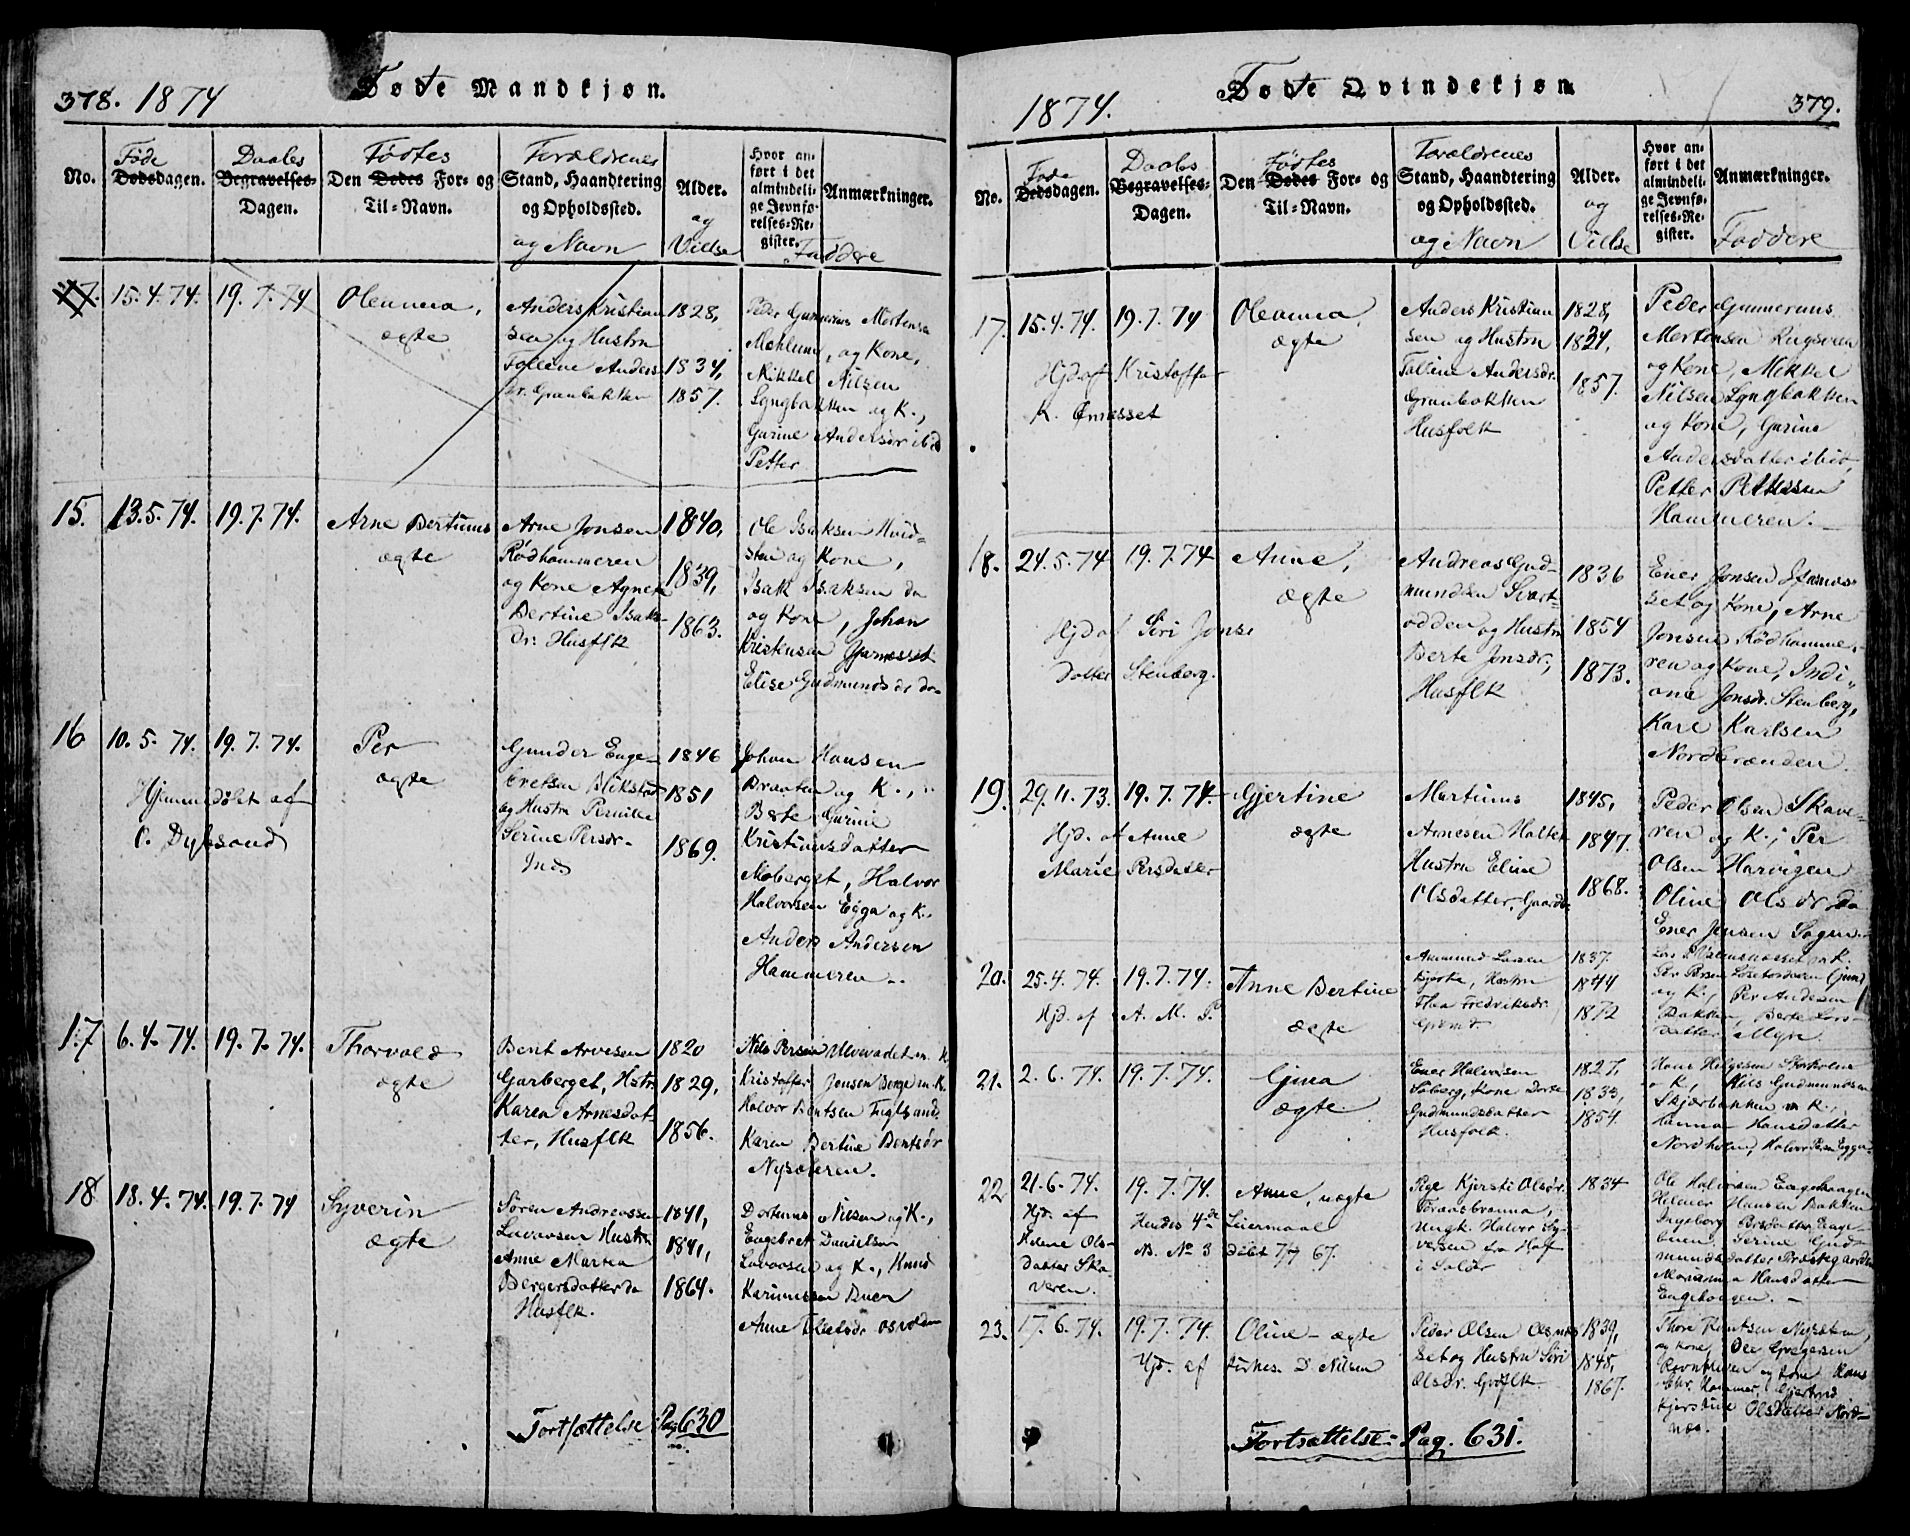 378. 1874
Føde Mandkjøn.
No.
Føde
Dødsdagen.
Daabs
Begravelses-
Dagen.
Fødtes
Den Dødes For- og
Til-Navn.
Forældrenes
Stand, Haandtering
og Opholdssted.
og Navn
Alder.
og
Vielse
Hvor an-
ført i det
almindeli-
ge Jevnfø-
relses-Re-
gister.
Anmærkninger.
Faddere
17. 15.4.74. 19.7.74
Oleanna,
ægte
Anders Kristian
sen og Hustru
Falline Anders
dr. Granbakken
1828,
1834,
1857.
Peder Gunnerius Mortensen
Mohlund, og Kone,
Mikkel Nilsen
Lyngbakken og K.,
Gurine Andersdr ibid
Petter
15. 13.5.74. 19.7.74.
Arne Bertinus
ægte
Arne Jonsen
Rødhammeren
og Kone Agnete
Bertine Isaks-
dr: Husflk
1840,
1839,
1863.
Ole Isaksen Hvid-
sten og Kone,
Isak Isaksen do
og Kone, Johan
Kristiansen
Elise Gudmundsdr do-
16 10.5.74. 19.7.74.
Hjemmedøbt af
O. Dyksand
Per
ægte
Gunder Enge-
bretsen Blikstad
og Hustru Pernille
Serine Persdr-
Inds
1846
1851
1869.
Johan Hansen
Braaten og K.,
Berte Gurine
Kristiansdatter
Moberget, Halvor
Halvorsen Egga og K.
Anders Andersen
Hammeren..
17 6.4.74. 19.7.74.
Thorvald
ægte
Bent Arnesen
Garberget, Hstr
Karen Arnesdat-
ter, Husflk
1820
1829,
1856.
Nils Persen Ulvevadet m. K
Kristoffer Jonsen Berge m. K.
Halvor Bentsen Fuglsand
Karen Bertine Bentsdr
Nysæteren.
18 18.4.74. 19.7.74
Syverin
ægte
Søren Andreassen
Lavaasen Hustru
Anne Martea
Bergersdatter do
Husflk.
1841,
1841,
1864.
Nilsen og K.,
Engebret Danielsen
Lavaasen og K., Knud
Karinussen Buen
Anne
Fortsættelse Pag 630
1874.
Føde Qvindekjøn
379.
No.
Føde
Dødsdagen.
Daabs
Begravelses-
Dagen.
Fødtes
Den Dødes For- og
Til-Navn.
Forældrenes
Stand, Haandtering
og Opholdssted.
og Navn
Alder.
og
Vielse
Hvor an-
ført i det
almindeli-
ge Jevnfø-
relses-Re-
gister.
Anmærkninger.
Faddere
17. 15.4.74. 19.7.74
Hjd af Kristoffer
K.
Oleanna
ægte
Anders Kristian
sen og Hustru
Falline Andersdr.
Granbakken
Husfolk
1828,
1834,
1857.
Peder Gunnerius
Mortensen Rugsveen
og Kone, Mikkel
Nilsen Lyngbakken
og Kone, Gurine
Andersdatter ibid,
Petter Pettersen
Hammeren.
18. 24.5.74 19.7.74
Hjd af Siri Jons
datter Stenberg.
Anne,
ægte
Andreas Gud-
mundsen Svart-
odden og Hustru
Berte Jonsdr,
Husflk
1836
1854
1873.
Ener Jonsen
set og Kone, Arne
Jonsen Rødhamme-
ren og Kone, Indi-
ane Jonsdr. Stenberg,
Kare Karlsen
Nordbrænden.
19. 29.11.73. 19.7.74.
Hjd. af Anne
Marie Persdatter
Gjertine
ægte
Martinus
Arnesen Holter
Hustru Eline
Olsdatter, Gaardb.
1845,
1847.
1868.
Peder Olsen Skave-
ren og K., Per
Olsen Harvigen
Oline Olsdr do
Ener Jensen Sogn
20. 25.4.74. 19.7.74.
Hjd. af A. M. P.
Anne Bertine
ægte
Ammund Larsen
Bjerke, Hustru
Thea Fredriksdr.
Grbrd.
1837.
1844
1872
og K., Per Andersen
Bakken, Berte Lars-
datter Myr.
21. 2.6.74. 19.7.74.
Gina
ægte
Ener Halvorsen
Soberg, Kone Dorte
Gudmundsdatter
Husfolk.
1827.
1833,
1854.
Hans Helgesen
o K, Nils Gudmundsen
Skjærbakken m K.,
Hanna Hansdatter
Nordholen, Halvor Persen Eggen
22 21.6.74. 19.7.74.
Hjd. af
Helene Ols-
datter Ska-
veren.
Hendes 4de Leiermaal
Ns. No 3 døbt 7/7 67.
Anne, uægte
Pige Kjersti Olsdr.
Foraasbrænna,
Ungk. Halvor Sy-
versen fra Hof
i Solør
1834
Ole Halvorsen Engehaugen
Helmer Hansen Bakken
Ingeborg Persdatter, Enge-
buen, Serine Gud-
mundsdatter Præstegaarden
Marianna Hansdatter
Engehaugen. -
23. 17.6.74. 19.7.74.
Hjd. af Kirkes. D. Nilsen
Oline - ægte
Peder Olsen
set og Hustru Siri
Olsdr. Grdflk.
1839,
1848,
1867.
Thore Knutsen
og Kone, Ole Gregersen
og Kone Hans
Chr. Hammer, Gjertrud
Kjerstine Olsdatter Nord-
næs.
Fortsættelse Pag. 631.